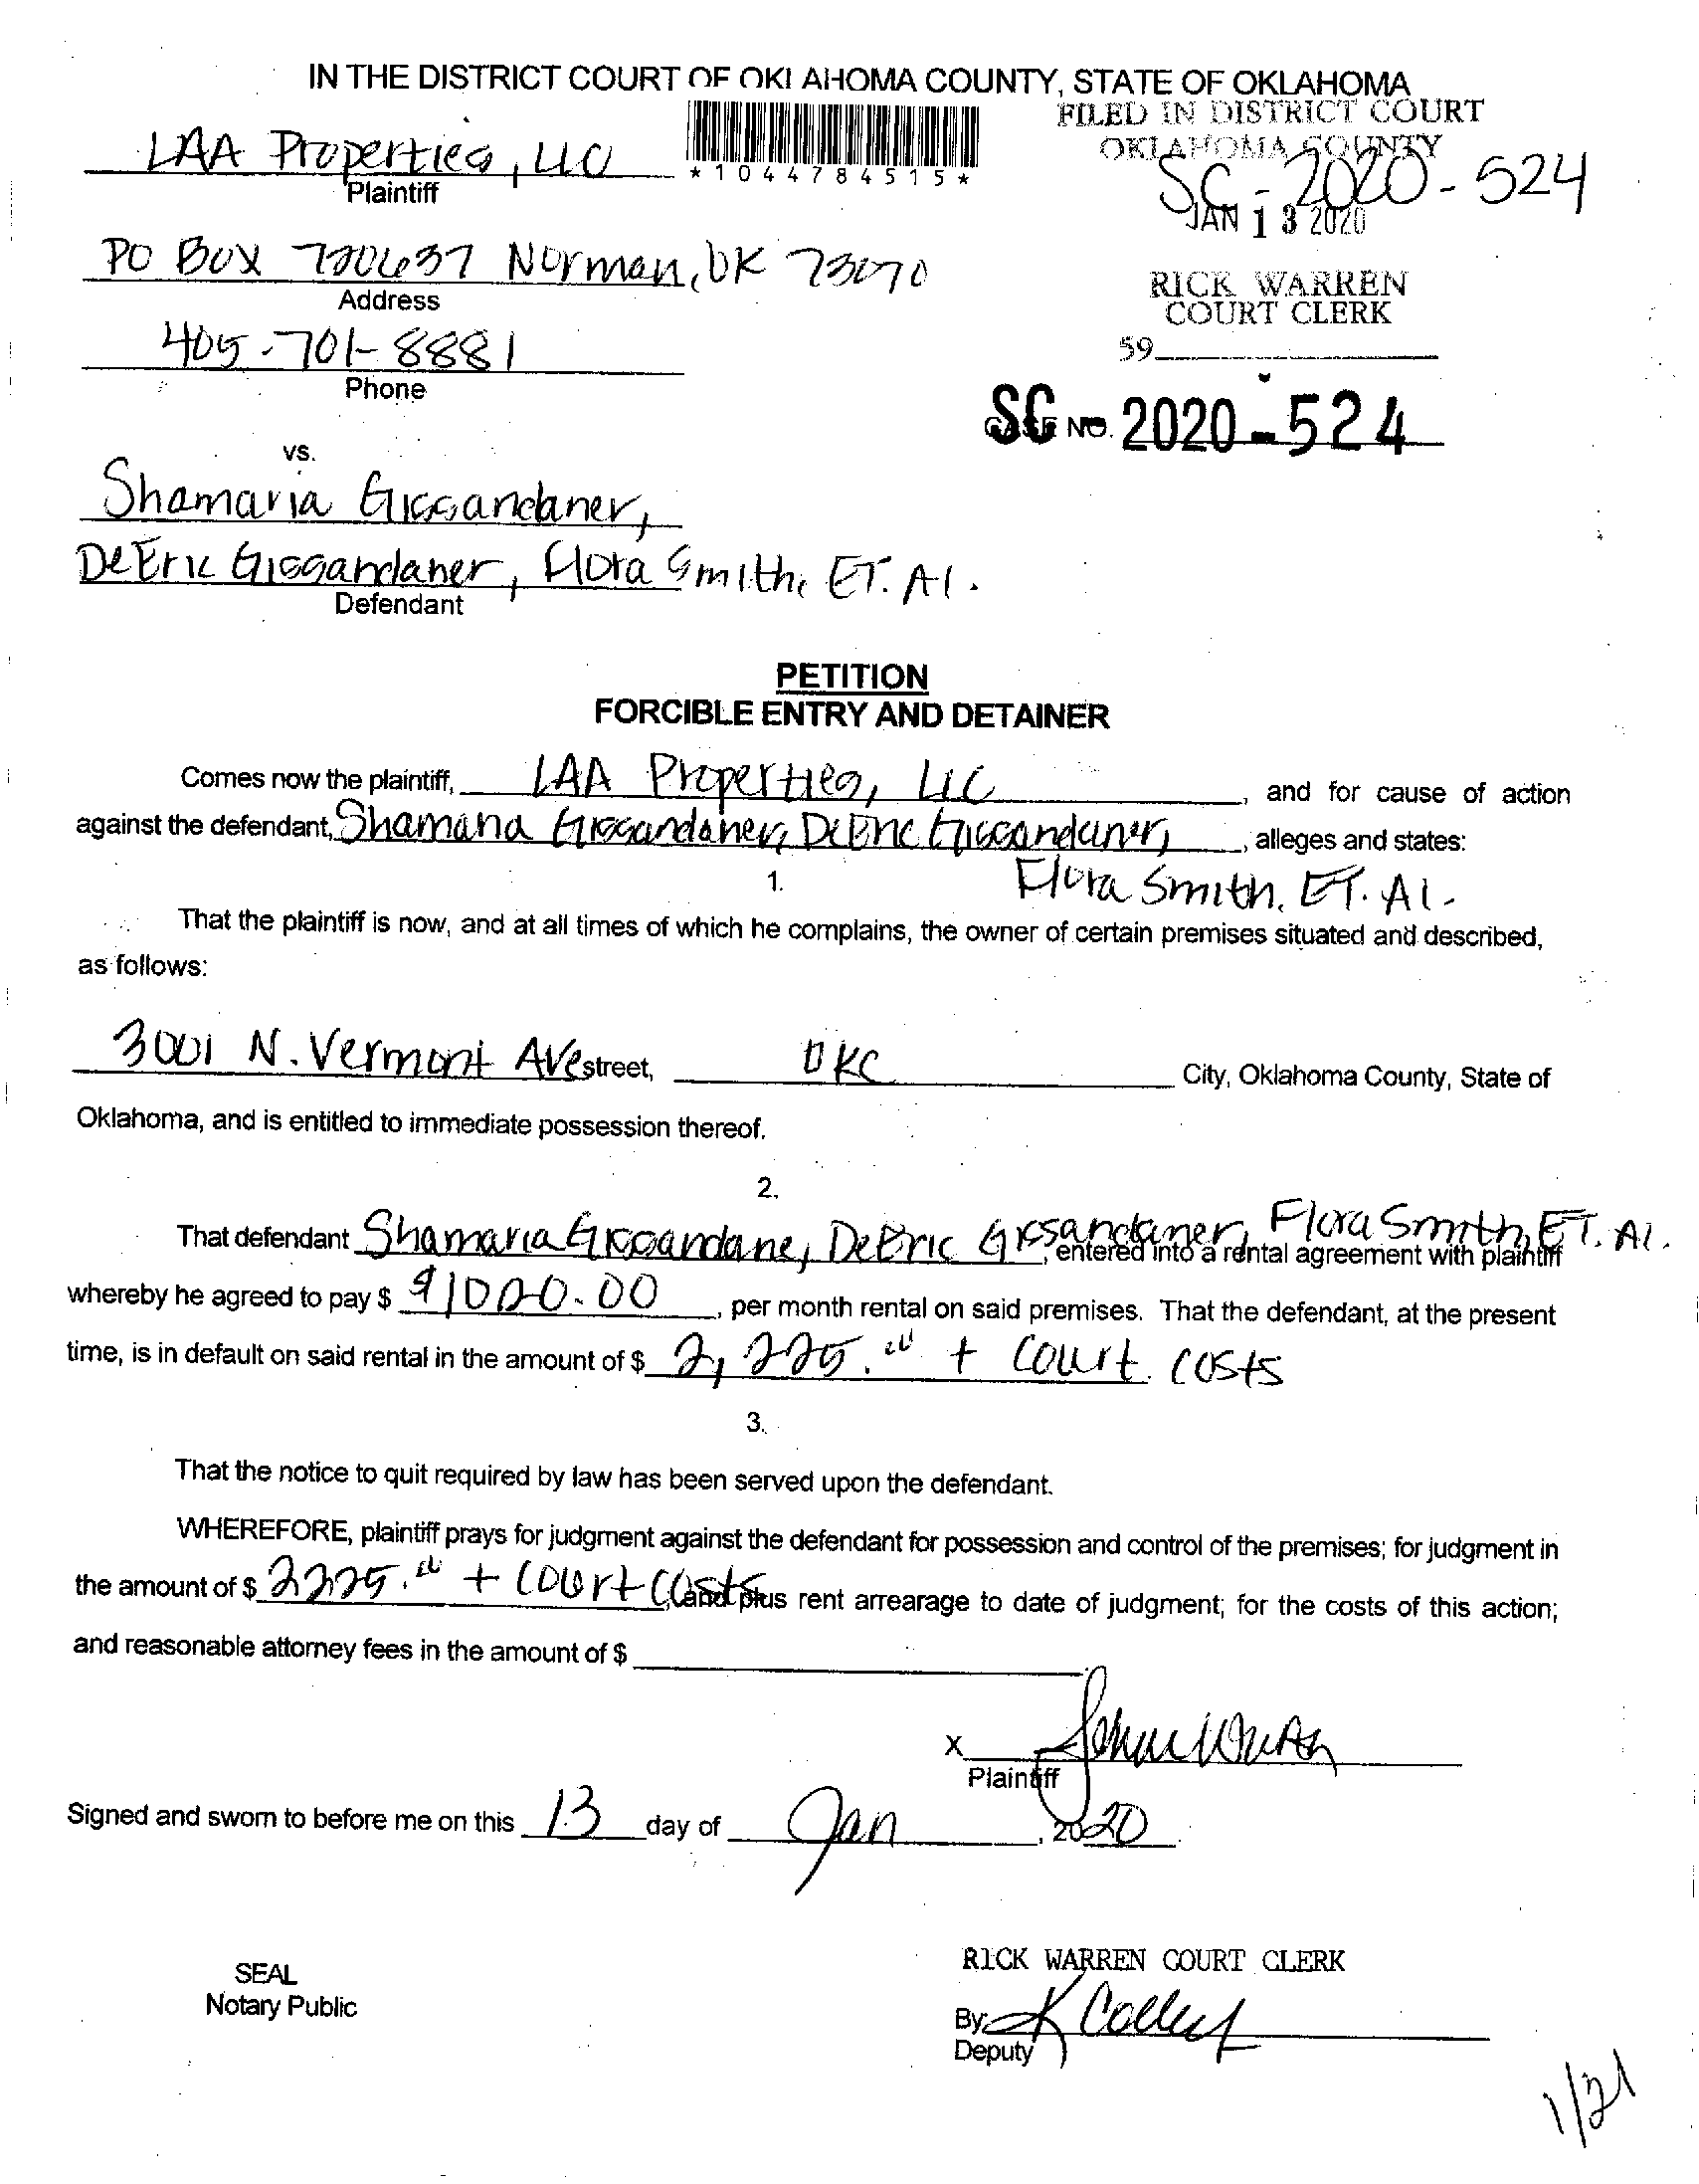 IN THE DISTRICT COURT OF OKLAHOMA COUNTY, STATE OF OKLAHOMA
FILED IN DISTRICT COURT
OKLAHOMA COUNTY
LAA Properties, LLC
*1044784515*
SC-2020-524
Plaintiff
JAN 13 2020
PO Box 720637 Norman, OK 73070
Address
RICK WARREN
COURT CLERK
405-701-8881
59
Phone
SC CASE NO. 2020-524
vs.
Shamaria Gissandaner,
DeEric Gissandaner, Flora Smith, ET. Al.
Defendant
PETITION
FORCIBLE ENTRY AND DETAINER
Comes now the plaintiff, LAA Properties, LLC, and for cause of action
against the defendant, Shamaria Gissandaner, DeEric Gissandaner, alleges and states:
Flora Smith, ET. Al.
1.
That the plaintiff is now, and at all times of which he complains, the owner of certain premises situated and described,
as follows:
3001 N. Vermont Ave street, OKC City, Oklahoma County, State of
Oklahoma, and is entitled to immediate possession thereof.
2.
That defendant Shamaria Gissandane, DeEric Gissandaner, Flora Smith, ET. Al., entered into a rental agreement with plaintiff
whereby he agreed to pay $ $1000.00, per month rental on said premises. That the defendant, at the present
time, is in default on said rental in the amount of $ 2,225.00 + court costs
3.
That the notice to quit required by law has been served upon the defendant.
WHEREFORE, plaintiff prays for judgment against the defendant for possession and control of the premises; for judgment in
the amount of $ 2225.00 + court costs, and plus rent arrearage to date of judgment; for the costs of this action;
and reasonable attorney fees in the amount of $
X
Plaintiff
Signed and sworn to before me on this 13 day of Jan, 2020
RICK WARREN COURT CLERK
SEAL
Notary Public
By K Colley
Deputy
1/21